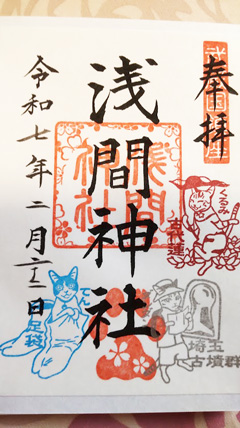 奉拝
浅間神社
令和七年二月二十二日
くるみ
古代蓮
埼玉
古墳群
足袋